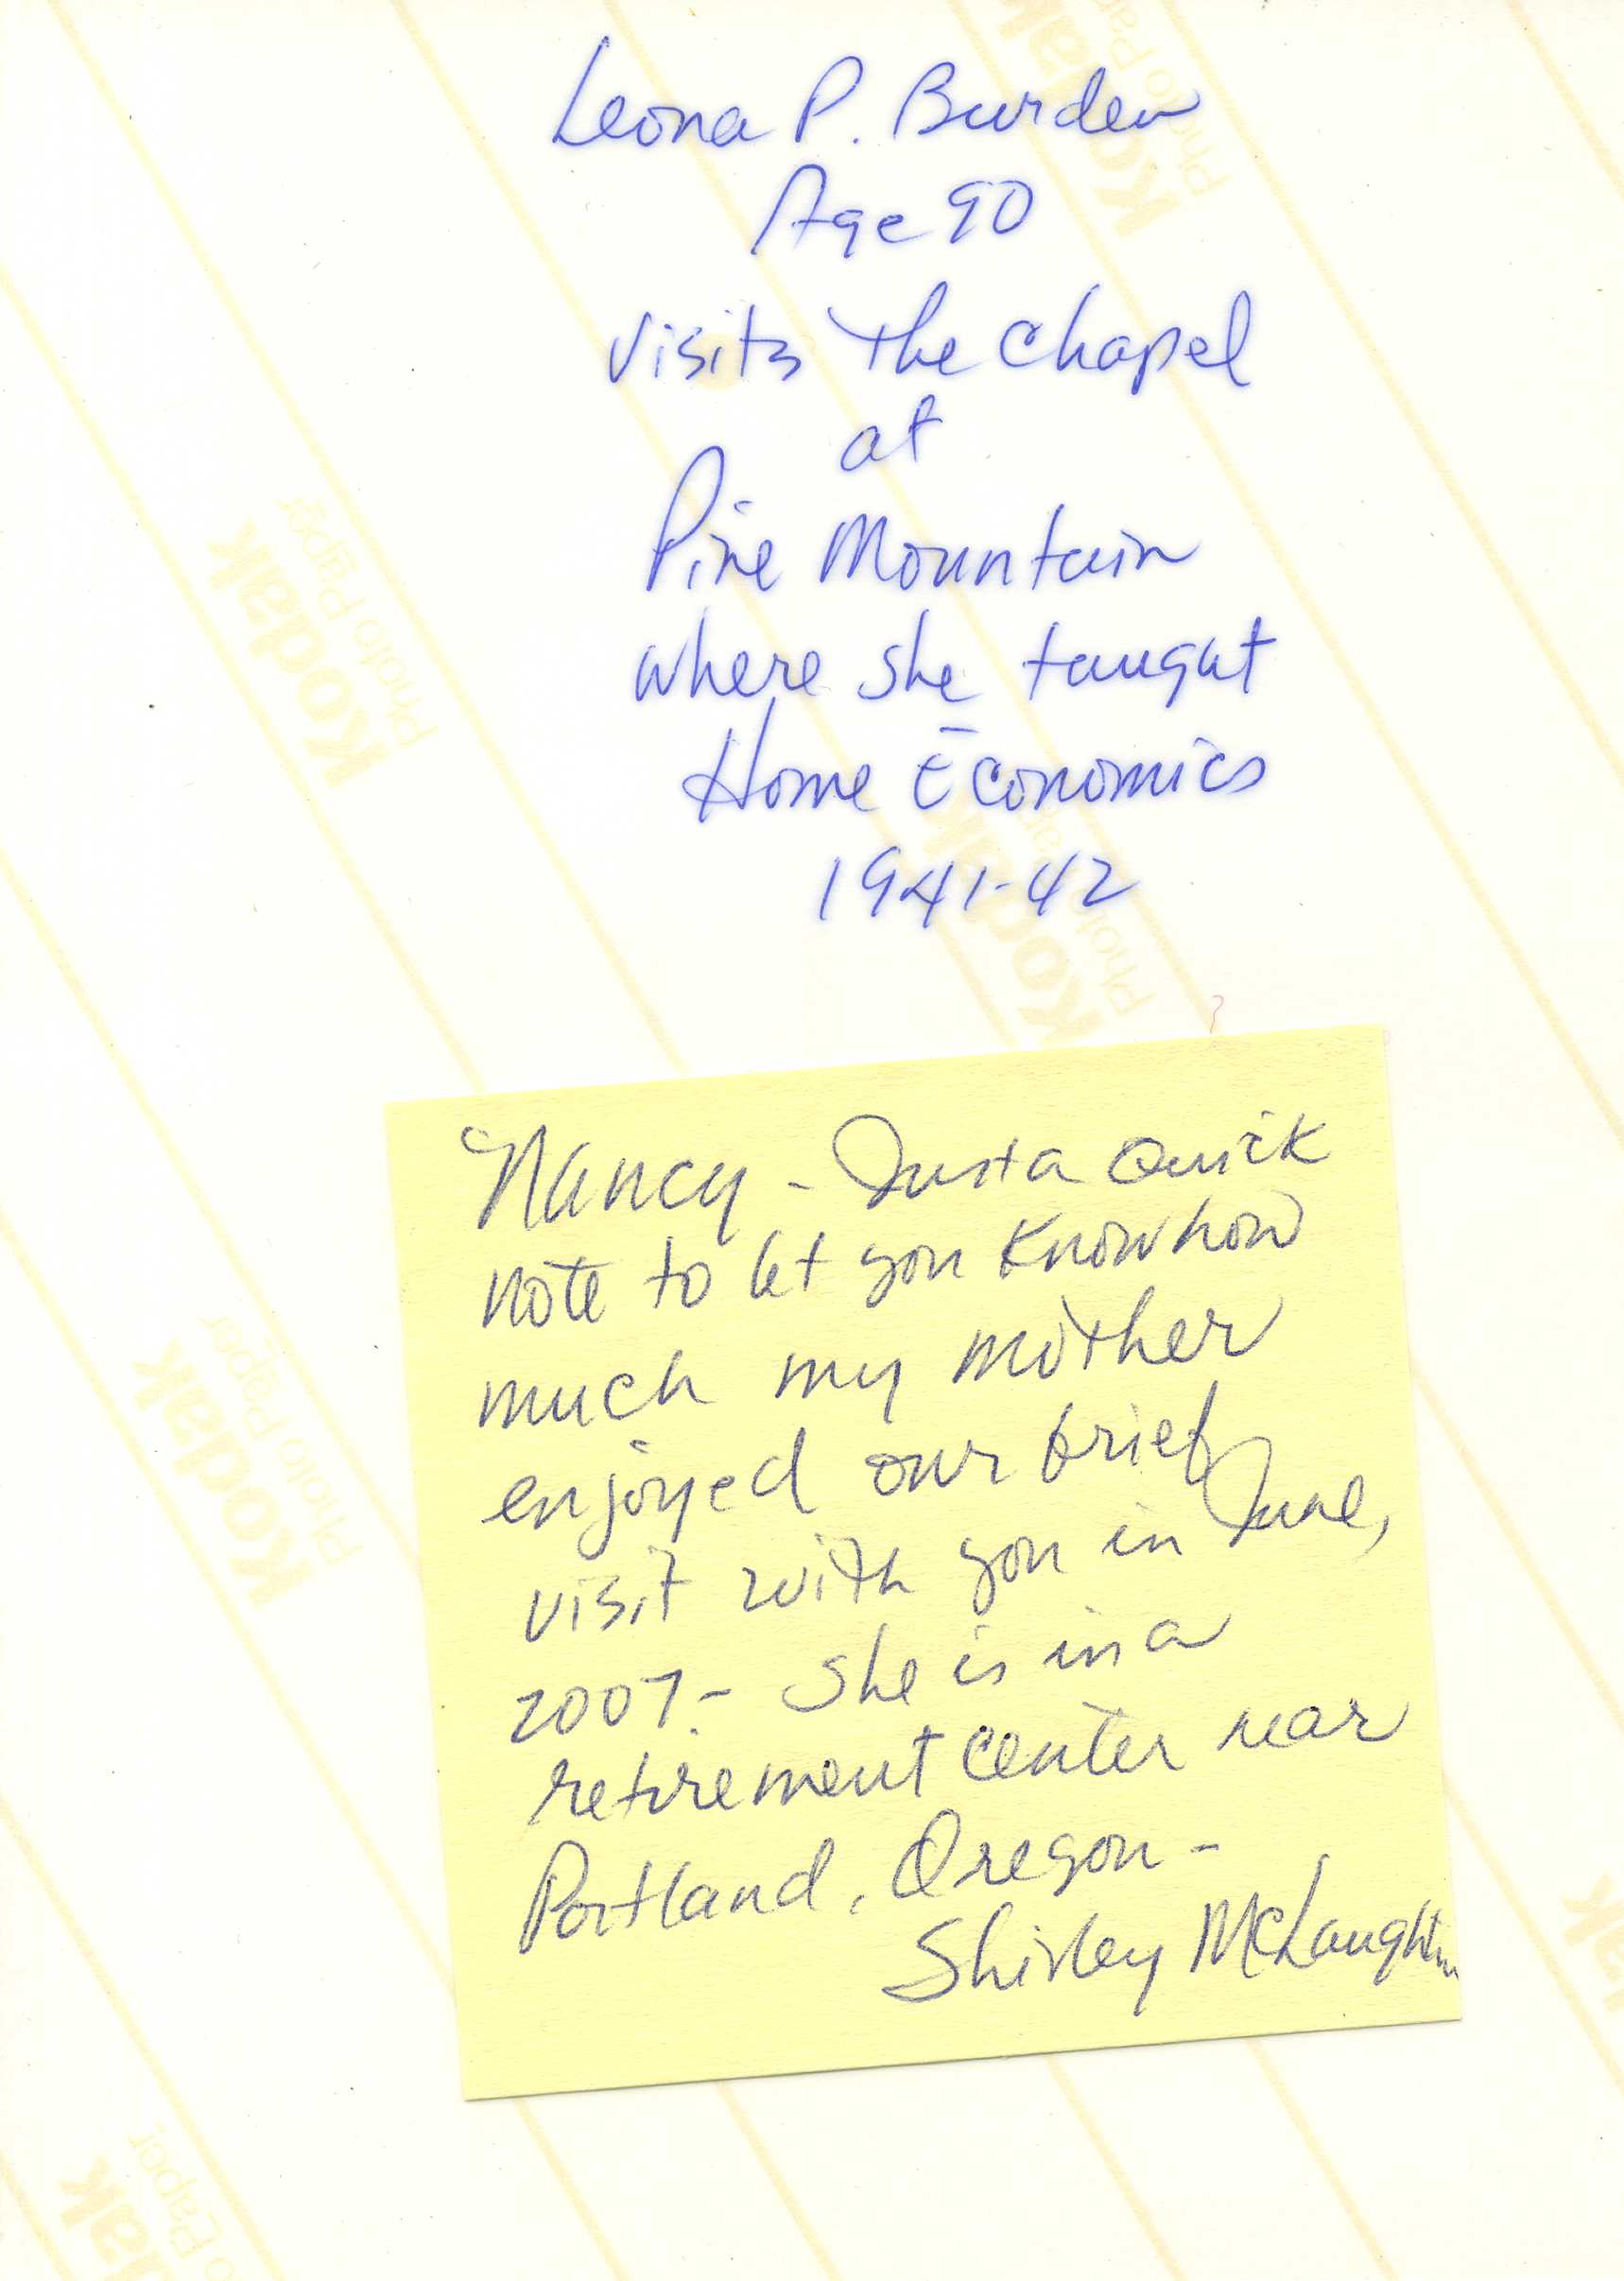 Leona P. Burden
Age 90
visits the Chapel
at
Pine Mountain
where she taught
Home Economics
1941-42
Nancy - Just a Quick
note to let you know how
much my mother
enjoyed our brief
visit with you in June,
2007. - She is in a
retirement center near
Portland, Oregon -
Shirley McLaughlin
Kodak
Photo Paper
Kodak
Photo Paper
Kodak
Photo Paper
Kodak
Photo Paper